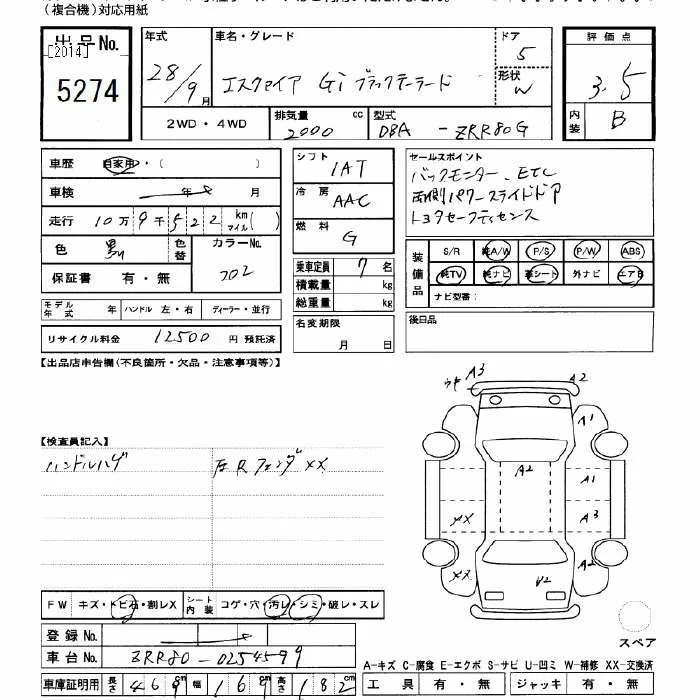 (複合機)対応用紙
出品No.
[2014]
5274
年式
28/9月
車名・グレード
エスクァイア Gi ブラックテーラード
ドア
5
形状
W
評価点
3.5
内装
B
2WD・4WD
排気量 cc
2000
型式
DBA - ZRR80G
車歴 自家用・(
車検 年 月
走行 10万9千522 km マイル( )
色 黒
色替
カラーNo.
202
保証書 有・無
モデル年式 年 ハンドル 左・右 ディーラー・並行
リサイクル料金 12500 円 預託済
シフト 1AT
冷房 AAC
燃料 G
乗車定員 7名
積載量 kg
総重量 kg
名変期限
月 日
セールスポイント
バックモニター、ETC
両側パワースライドドア
トヨタセーフティセンス
装備品
S/R 純A/W P/S P/W ABS
純TV 純ナビ 革シート 外ナビ エアB
ナビ型番:
後日品
【出品店申告欄(不良箇所・欠品・注意事項等)】
【検査員記入】
ハンドルハゲ
左Rフェンダ XX
A3
A2
A1
A2
A1
XX
A3
XX
A2
FW キズ・トビ石・割レX
シート内装 コゲ・穴・汚レ・シミ・破レ・スレ
登録No.
車台No. ZRR80-0254599
車庫証明用 長さ 469 幅 169 高さ 182
スペア
A-キズ C-腐食 E-エクボ S-サビ U-凹ミ W-補修 XX-交換済
工具 有・無 ジャッキ 有・無